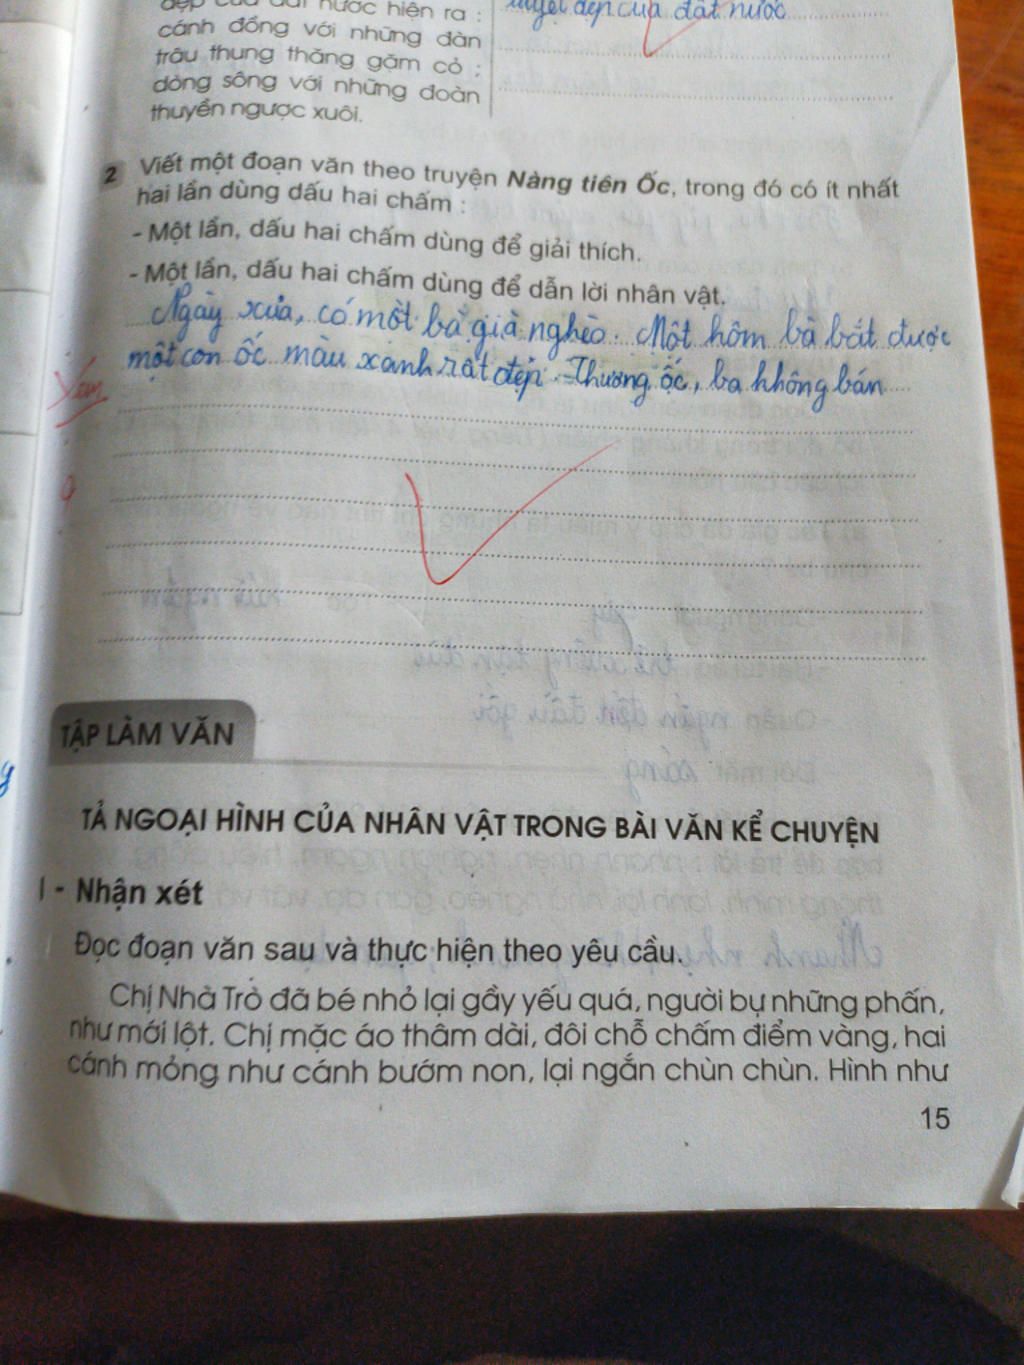 đẹp của đất nước hiện ra :
tuyệt đẹp của đất nước
cánh đồng với những đàn
trâu thung thăng gặm cỏ ;
dòng sông với những đoàn
thuyền ngược xuôi.
2 Viết một đoạn văn theo truyện Nàng tiên Ốc, trong đó có ít nhất
hai lần dùng dấu hai chấm :
- Một lần, dấu hai chấm dùng để giải thích.
- Một lần, dấu hai chấm dùng để dẫn lời nhân vật.
Ngày xửa, có một bà già nghèo. Một hôm bà bắt được
một con ốc màu xanh rất đẹp. Thương ốc, ba không bán
Xem
9
TẬP LÀM VĂN
TẢ NGOẠI HÌNH CỦA NHÂN VẬT TRONG BÀI VĂN KỂ CHUYỆN
I - Nhận xét
Đọc đoạn văn sau và thực hiện theo yêu cầu.
Chị Nhà Trò đã bé nhỏ lại gầy yếu quá, người bự những phấn,
như mới lột. Chị mặc áo thâm dài, đôi chỗ chấm điểm vàng, hai
cánh mỏng như cánh bướm non, lại ngắn chùn chùn. Hình như
15